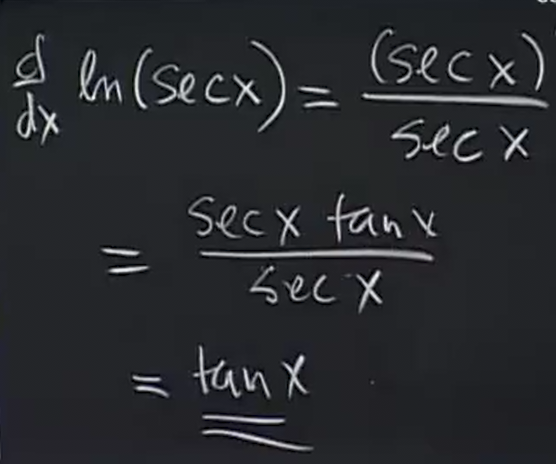 d/dx ln(secx) = (secx)/secx
= secx tanx/secx
= tanx